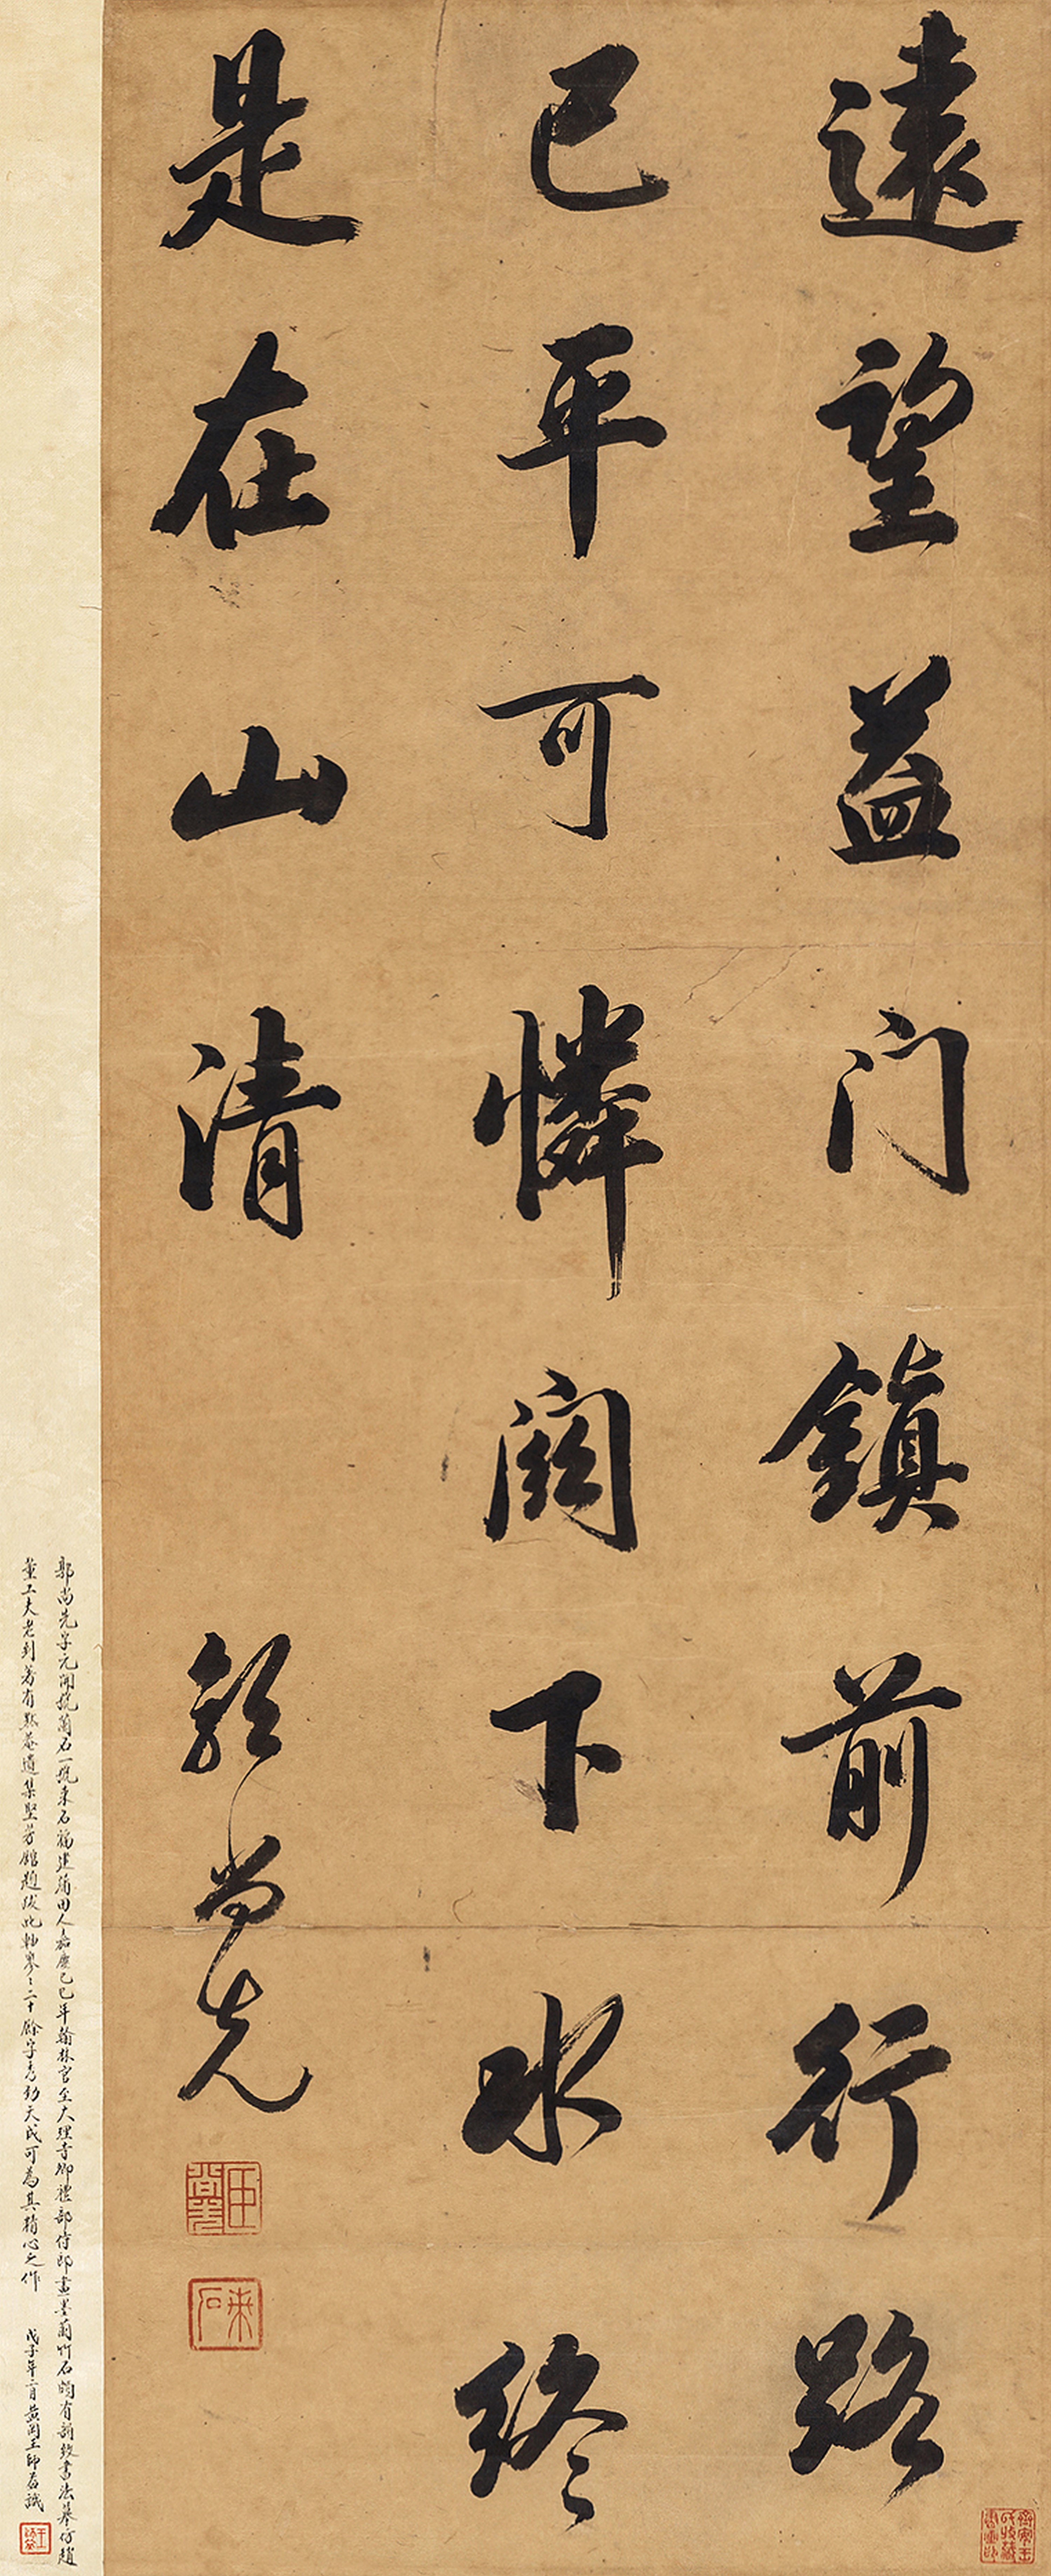 遠望益门鎮前行路
已平可憐闕下水終
是在山清
郭尚先
尚先
蘭石
郭尚先字元開號蘭石一號東石福建莆田人嘉慶己巳年翰林官至大理寺卿禮部侍郎畫墨蘭竹石饒有韻致書法摹仿趙
董工夫老到著有默菴遺集堅芳館題跋此軸寥寥二十餘字秀勁天成可為其精心之作
戊子年二月黃岡王師石識